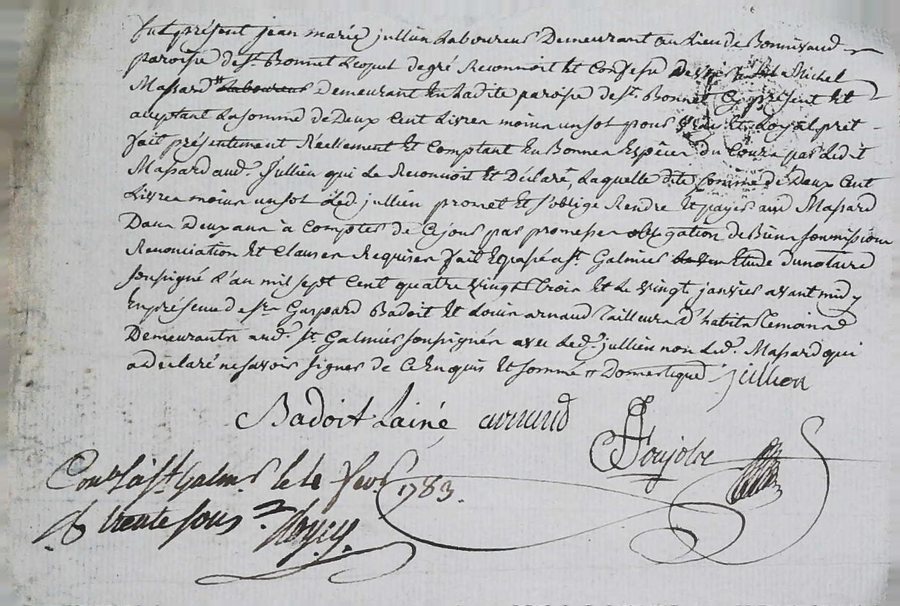 fut présent jean marie jullien Laboureur Demeurant au Lieu de Bonnivaud
paroisse de st Bonnet Lequel de gré Reconnoit Et Confesse Devoir à Michel
Massard Laboureur Demeurant En Ladite paroisse de st Bonnet Cy présent Et
acceptant La somme de Deux Cent Livres moins un sol pour Et Loyal prêt
fait présentement Réellement Et Comptant En Bonnes Espèces du Cours par Ledt
Massard aud. Jullien qui Le Reconnoit Et Déclare, Laquelle dite somme de Deux Cent
Livres moins un sol Led jullien promet Et s'oblige Rendre Et payer aud Massard
Dans Deux ans à Compter de Ce jour par promesse obligation de Biens soumissions
Renonciation Et Clauses Requises fait Et passé a st. Galmier Etude du notaire
sousigné L'an mil sept Cent quatre vingt trois Et Le vingt janvier avant midy
En présence de sr Gaspard Badoit Et Louis arnaud tailleur d'habits temoins
Demeurants aud. st. Galmier sousignés avec Led. jullien non Led. Massard qui
a déclaré ne savoir signer de Ce Enquis Et sommé Domestique jullien
Badoit Lainé arnaud
Conlé à st Galm. le 4 fevr 1783.
trente sous